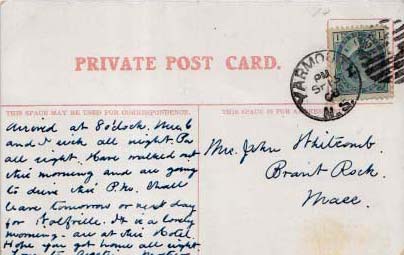 PRIVATE POST CARD.
THIS SPACE MAY BE USED FOR CORRESPONDENCE.
THIS SPACE IS FOR
YARMOUTH
PM
N.S.
Arrived at 8 o'clock. Mrs. C
and I sick all night. Pa
all right. Have walked out
this morning and are going
to drive this P.M. Shall
leave tomorrow or next day
for Wolfville. It is a lovely
morning. are at this Hotel.
Hope you got home all right
Mrs. John Whitcomb.
Brant Rock.
Mass.